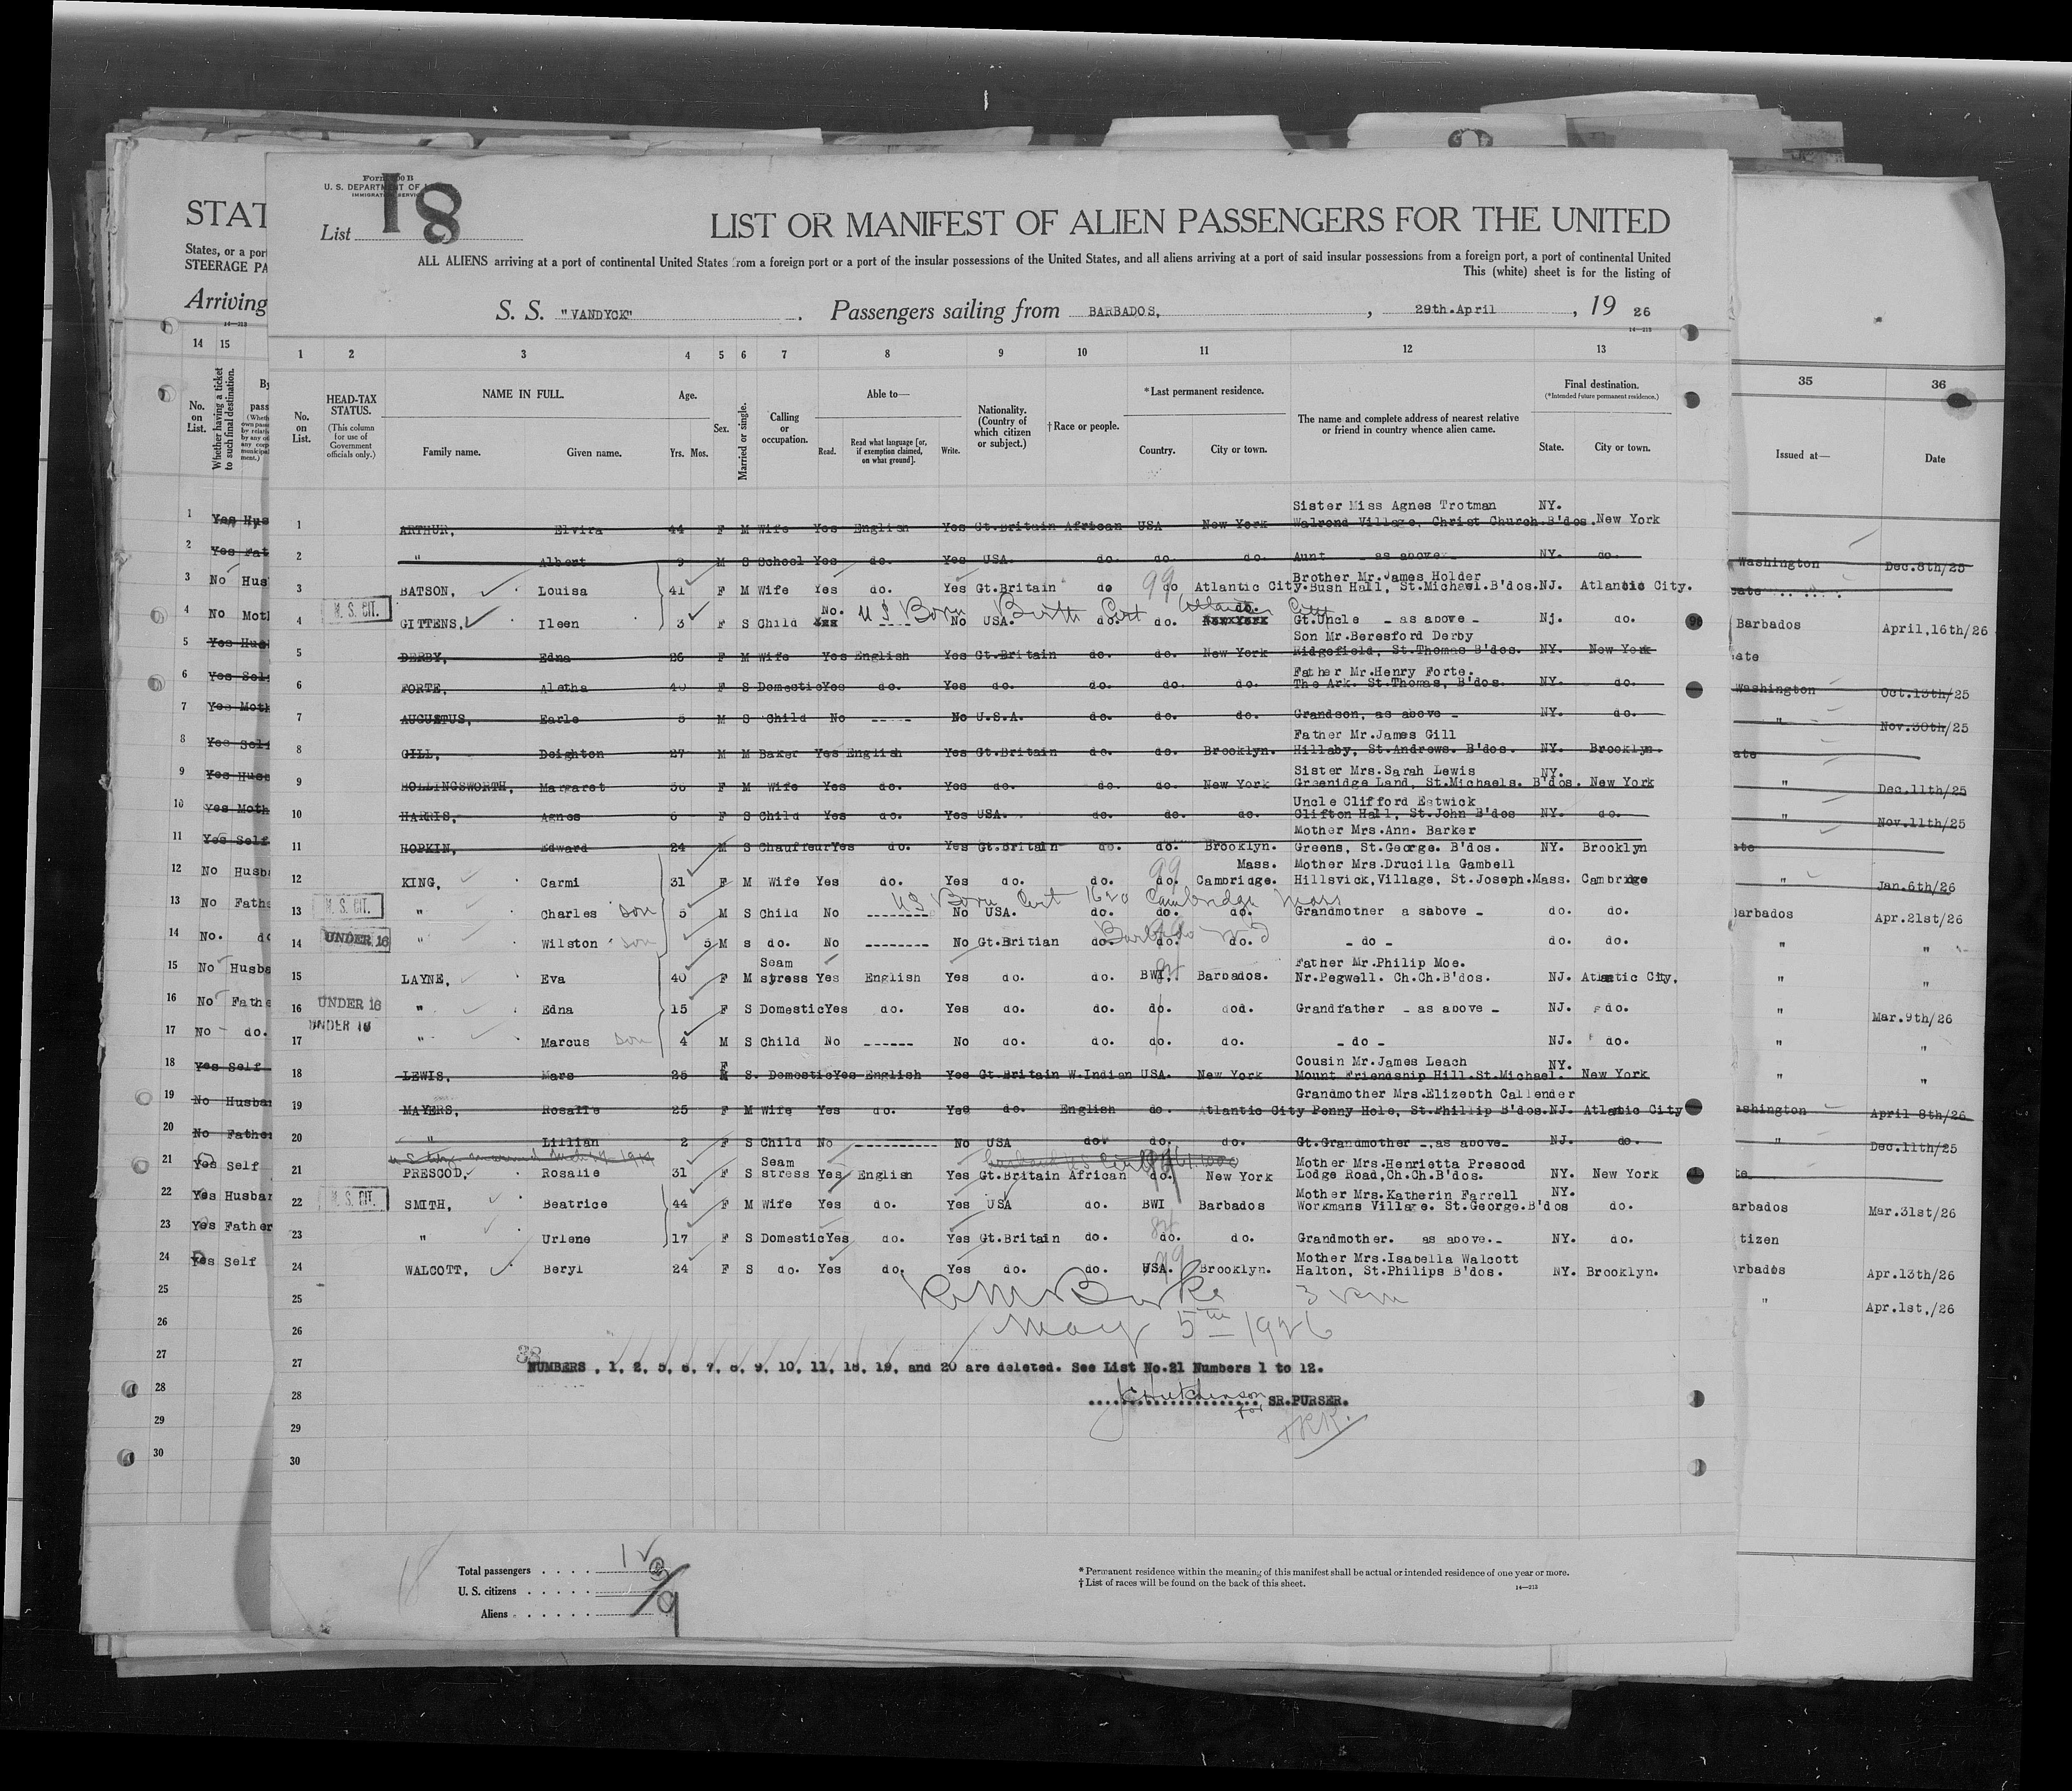 Form 500 B
U. S. DEPARTMENT OF
IMMIGRATION SERVICE
List 18
LIST OR MANIFEST OF ALIEN PASSENGERS FOR THE UNITED
ALL ALIENS arriving at a port of continental United States from a foreign port or a port of the insular possessions of the United States, and all aliens arriving at a port of said insular possessions from a foreign port, a port of continental United
This (white) sheet is for the listing of
S. S. "VANDYCK" . Passengers sailing from BARBADOS, , 29th.April , 19 26
14—213
1 2 3 4 5 6 7 8 9 10 11 12 13
No. on List.
HEAD-TAX STATUS.
(This column for use of Government officials only.)
NAME IN FULL.
Family name. Given name.
Age.
Yrs. Mos.
Sex.
Married or single.
Calling or occupation.
Able to—
Read. Read what language [or, if exemption claimed, on what ground]. Write.
Nationality. (Country of which citizen or subject.)
†Race or people.
*Last permanent residence.
Country. City or town.
The name and complete address of nearest relative or friend in country whence alien came.
Final destination.
(*Intended future permanent residence.)
State. City or town.
Sister Miss Agnes Trotman NY.
1 ARTHUR, Elvira 44 F M Wife Yes English Yes Gt.Britain African USA New York Walrond Village, Christ Church.B'dos. New York
2 " Albert 9 M S School Yes do. Yes USA. do. do. do. Aunt - as above - NY. do.
Brother Mr.James Holder
3 BATSON, Louisa 41 F M Wife Yes do. Yes Gt.Britain do 99 do Atlantic City. Bush Hall, St.Michael.B'dos. NJ. Atlantic City.
U. S. CIT. No. US Born Birth Cert Atlantic City do.
4 GITTENS, Ileen 3 F S Child xxx ---- No USA. do. do. New York Gt.Uncle - as above - Nj. do.
Son Mr.Beresford Derby
5 DERBY, Edna 26 F M Wife Yes English Yes Gt.Britain do. do. New York Ridgefield, St.Thomas B'dos. NY. New York
Father Mr.Henry Forte.
6 FORTE, Aletha 40 F S Domestic Yes do. Yes do. do. do. do. The Ark. St.Thomas, B'dos. NY. do.
7 AUGUSTUS, Earle 5 M S Child No ----- No U.S.A. do. do. do. Grandson, as above - NY. do.
Father Mr.James Gill
8 GILL, Deighton 27 M M Baker Yes English Yes Gt.Britain do. do. Brooklyn. Hillaby, St.Andrews. B'dos. NY. Brooklyn.
Sister Mrs.Sarah Lewis NY.
9 HOLLINGSWORTH, Margaret 36 F M Wife Yes do. Yes do. do. do. New York Greenidge Land, St.Michaels. B'dos. New York
Uncle Clifford Estwick
10 HARRIS, Agnes 6 F S Child Yes do. Yes USA. do. do. do. Clifton Hall, St.John B'dos NY. do.
Mother Mrs.Ann. Barker
11 HOPKIN, Edward 24 M S Chauffeur Yes do. Yes Gt.Britain do. do. Brooklyn. Greens, St.George. B'dos. NY. Brooklyn
99 Mass. Mother Mrs.Drucilla Gambell
12 KING, Carmi 31 F M Wife Yes do. Yes do. do. do. Cambridge. Hillsvick,Village, St.Joseph. Mass. Cambridge
U. S. CIT. US Born Cert 1620 Cambridge Mass
13 " Charles son 5 M S Child No -------- No USA. do. do. do. Grandmother a sabove - do. do.
UNDER 16 Barbados
14 " Wilston son 5 M s do. No -------- No Gt.Britian do. do. do. - do - do. do.
Seam Father Mr.Philip Moe.
15 LAYNE, Eva 40 F M stress Yes English Yes do. do. BWI. Barbados. Nr.Pegwell. Ch.Ch.B'dos. NJ. Atlantic City.
UNDER 16
16 " Edna 15 F S Domestic Yes do. Yes do. do. do. dod. Grandfather - as above - NJ. do.
UNDER 16
17 " Marcus son 4 M S Child No ------ No do. do. do. do. - do - NJ. do.
F Cousin Mr.James Leach NY.
18 LEWIS, Mars 25 M S. Domestic Yes English Yes Gt.Britain W.Indian USA. New York Mount Friendship Hill.St.Michael. New York
Grandmother Mrs.Elizebth Callender
19 MAYERS, Rosalie 25 F M Wife Yes do. Yes do. English do. Atlantic City Penny Hole, St.Phillip B'dos. NJ. Atlantic City
20 " Lillian 2 F S Child No ---------- No USA do. do. do. Gt.Grandmother -,as above- NJ. do.
Seam Mother Mrs.Henrietta Presocd
21 PRESCOD, Rosalie 31 F S stress Yes English Yes Gt.Britain African do. New York Lodge Road,Ch.Ch.B'dos. NY. New York
U. S. CIT. Mother Mrs.Katherin Farrell NY.
22 SMITH, Beatrice 44 F M Wife Yes do. Yes USA do. BWI Barbados Workmans Village. St.George.B'dos do.
23 " Urlene 17 F S Domestic Yes do. Yes Gt.Britain do. do. do. Grandmother. as above.- NY. do.
Mother Mrs.Isabella Walcott
24 WALCOTT, Beryl 24 F S do. Yes do. Yes do. do. USA. Brooklyn. Halton, St.Philips B'dos. NY. Brooklyn.
25
26 May 5th 1926
27 NUMBERS , 1, 2, 5, 6, 7, 8, 9, 10, 11, 18, 19, and 20 are deleted. See List No.21 Numbers 1 to 12.
28 J Hutchinson for SR.PURSER.
29
30
Total passengers
U. S. citizens
Aliens
* Permanent residence within the meaning of this manifest shall be actual or intended residence of one year or more.
† List of races will be found on the back of this sheet.
14—213
STAT
States, or a por
STEERAGE PA
Arriving
14—213
14 15
No. on List.
Whether having a ticket to such final destination.
1 Yes Hus
2 Yes Fat
3 No Hus
4 No Mot
5 Yes Hus
6 Yes Sel
7 Yes Moth
8 Yes Sel
9 Yes Hus
10 Yes Moth
11 Yes Self
12 No Husb
13 No Fath
14 No. d
15 No Husba
16 No Fathe
17 No do.
18 Yes Self
19 No Husba
20 No Father
21 Yes Self
22 Yes Husban
23 Yes Father
24 Yes Self
25
26
27
28
29
30
35 36
Issued at— Date
Washington Dec.8th/25
Barbados April,16th/26
ate
Washington Oct.13th/25
" Nov.30th/25
ate
" Dec.11th/25
" Nov.11th/25
" Jan.6th/26
arbados Apr.21st/26
" "
" "
" Mar.9th/26
" "
" "
ashington April 8th/26
" Dec.11th/25
arbados Mar.31st/26
tizen
rbados Apr.13th/26
" Apr.1st./26